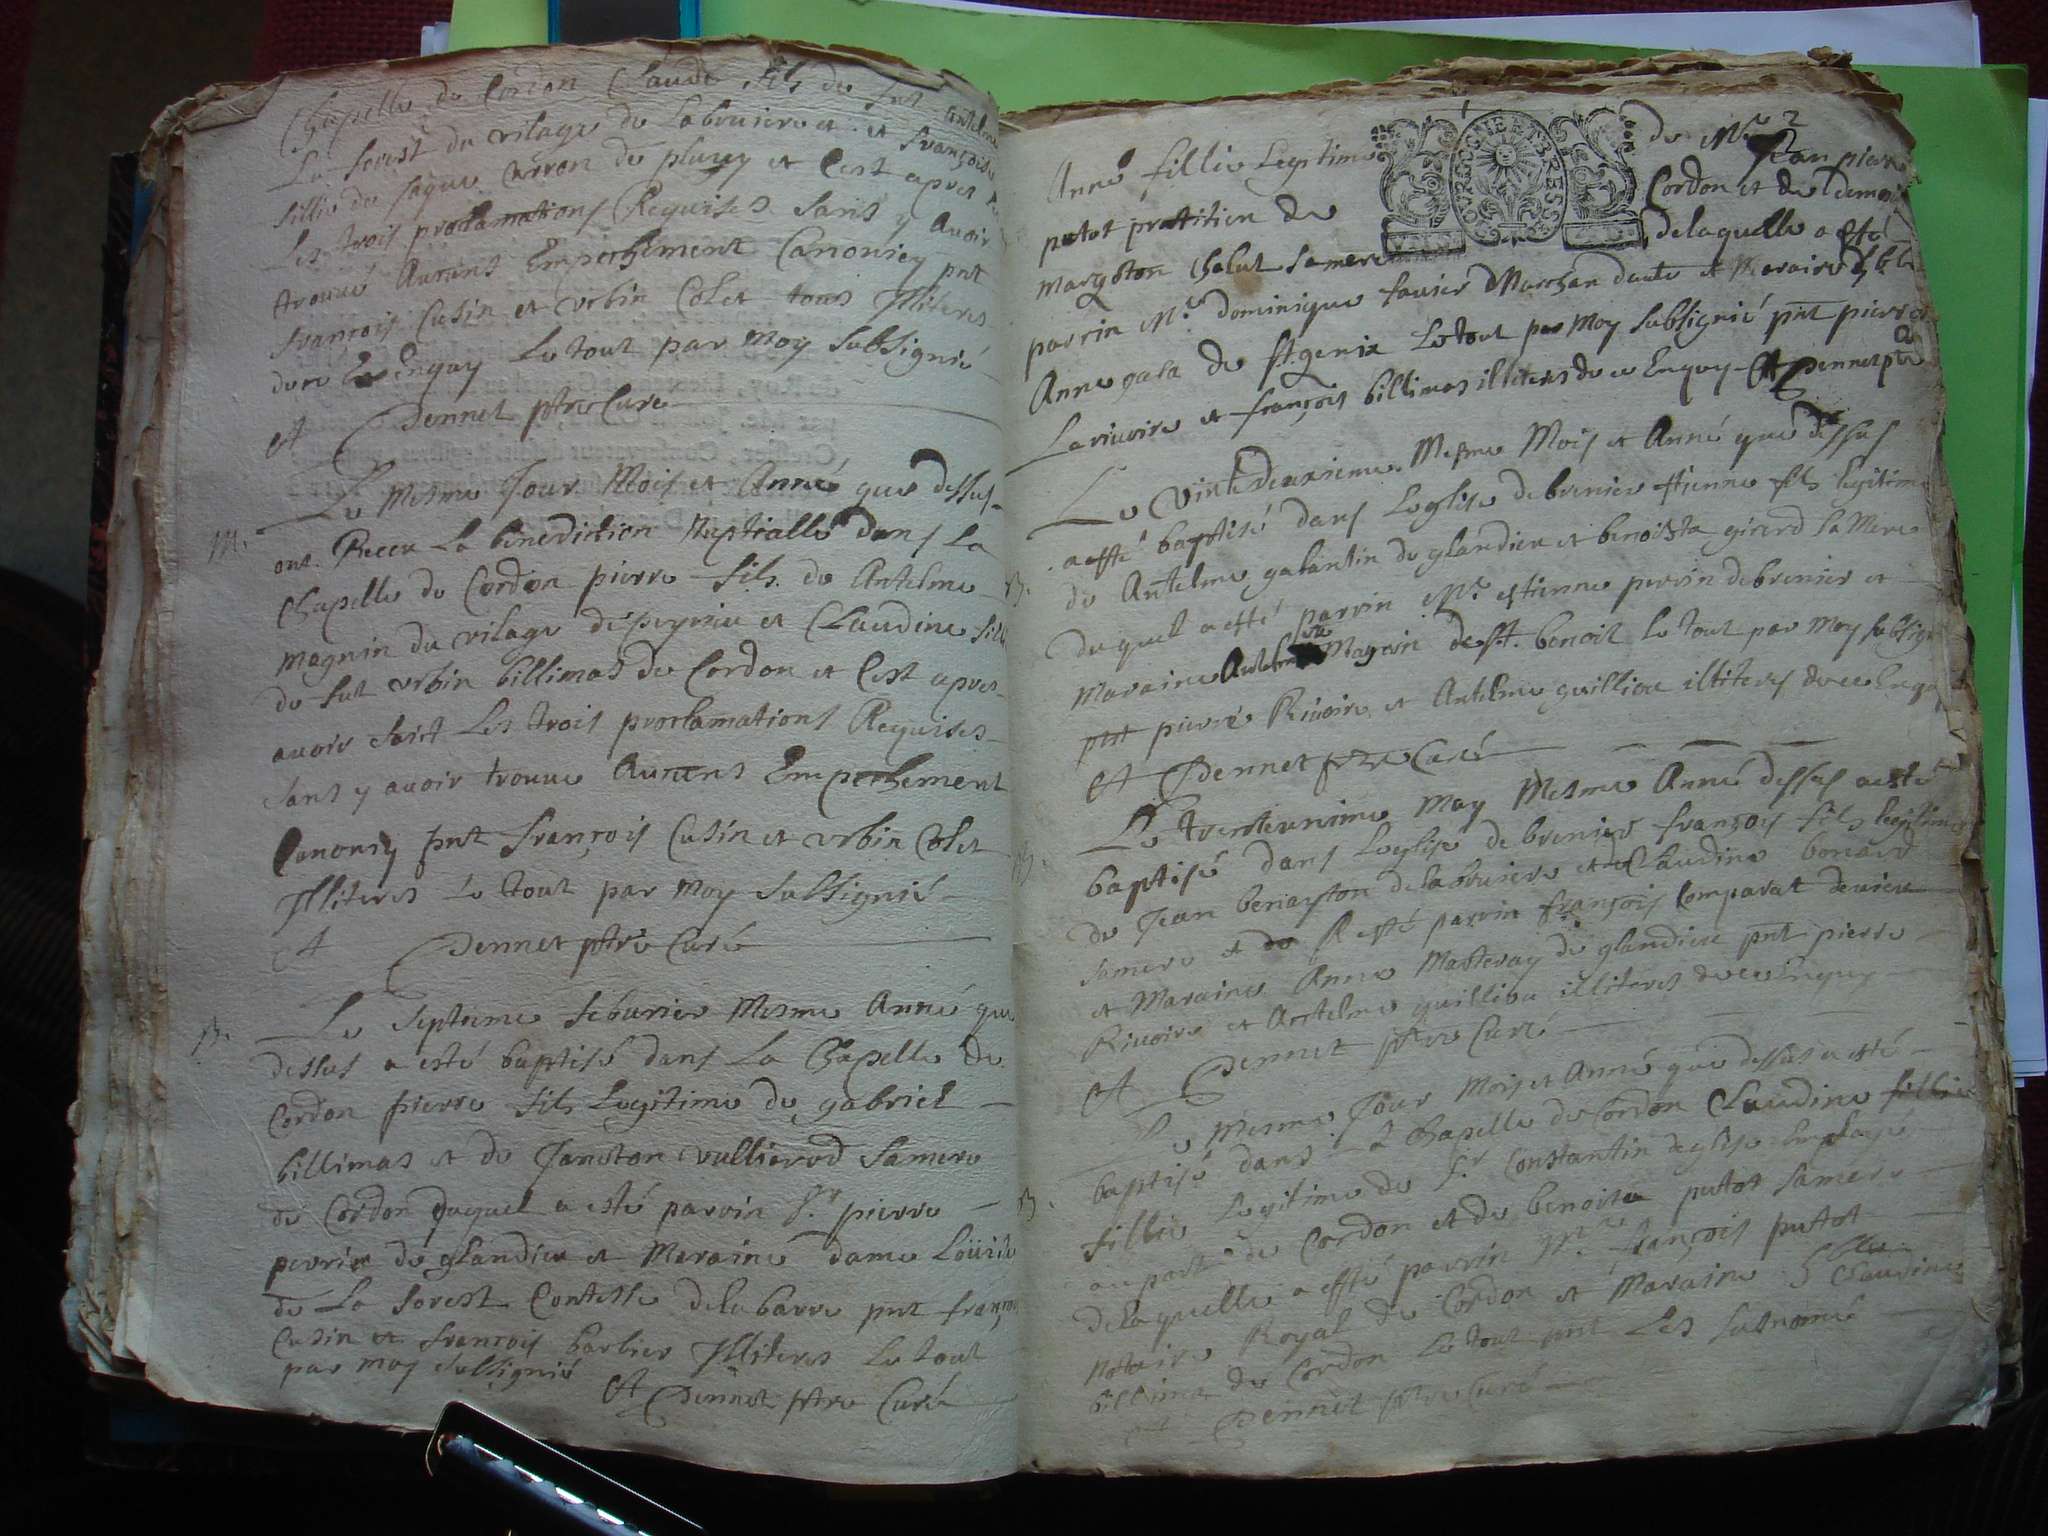 Chapelle de Cordon Claude fils de fut Antelme
La forest du vilage de Labruiere et et françoise
fillie de Carron de plurey et C'est apres
Les trois proclamations Requises sans y avoir
trouvé Aucuns Empechement Canoniq pnt
françois Cusin et vrbin Colet tous Illiteres
de ce Enquy Le tout par moy subsignié
Et Dennet ptre Curé
M. Le mesme Jour Mois et Année que dessus
ont Receu La benediction Nuptialle dans La
Chapelle de Cordon pierre fils de Antelme
magnin du vilage de peyzieu et Claudine fille
de fut vrbin billimas de Cordon et C'est apres
avoir faict Les trois proclamations Requises
sans y avoir trouvé Aucuns Empechement
Canoniq pnt françois Cusin et vrbin Colet
Illiteres Le tout par moy subsignié
Et Dennet ptre Curé
B. Le septieme feburier Mesme Année que
dessus a esté baptisé dans La Chapelle de
Cordon pierre fils Legitime de gabriel
billimas et de Janeton vullierod Samere
de Cordon duquel a esté parrin Sr. pierre
perrin de glandieu et Maraine dame Loüise
de La forest Contesse de la barre pnt françois
Cusin et françois barbier Illiteres Le tout
par moy subsignié
Et Dennet ptre Curé
2
Anne fillie Legitime de Mre Jean pierre
putot pratitien de Cordon et de demoi
margoton Chalut Samere de laquelle a esté
parrin Mr. dominique favier Marchan et Maraine
Anne de St. genix Le tout par Moy subsignié pnt pierre
La riuoire et françois billimas illiteres de ce Enquy Et Dennet ptre
BOURGOGNE ET BRESSE
Le Vintedeuxieme Mesme Mois et Année que dessus
a esté baptisé dans Leglise de brenier Etienne fils legitime
B. de Antelme galantin de glandieu et benoiste girerd Sa Mere
duquel a esté parrin Mr. estienne perrin de brenier et
Maraine Magnin de St. benoit Le tout par moy subsignié
pnt pierre Riuoire et Antelme guillion illiteres de ce Enquy
Et Dennet ptre Curé
Le trenteunime May Mesme Année dessus a esté
B. baptisé dans Leglise de brenier françois fils legitime
de Jean benaston de Labruiere et de Claudine bonard
Samere et de R esté parrin françois Comparat
et Maraine Anne Masteray de glandieu pnt pierre
Riuoire et Antelme guillion illiteres de ce Enquy
Et Dennet ptre Curé
Le Mesme Jour Mois et Année que dessus a esté
baptisé dans La Chapelle de Cordon Claudine fillie
B. fillie Legitime de Sr Constantin deglise Employé
au port de Cordon et de benoite putot Samere
de laquelle a esté parrin Mre françois putot
notaire Royal de Cordon et Maraine Claudine
billimas de Cordon Le tout pnt Les susnomé
Et Dennet ptre Curé